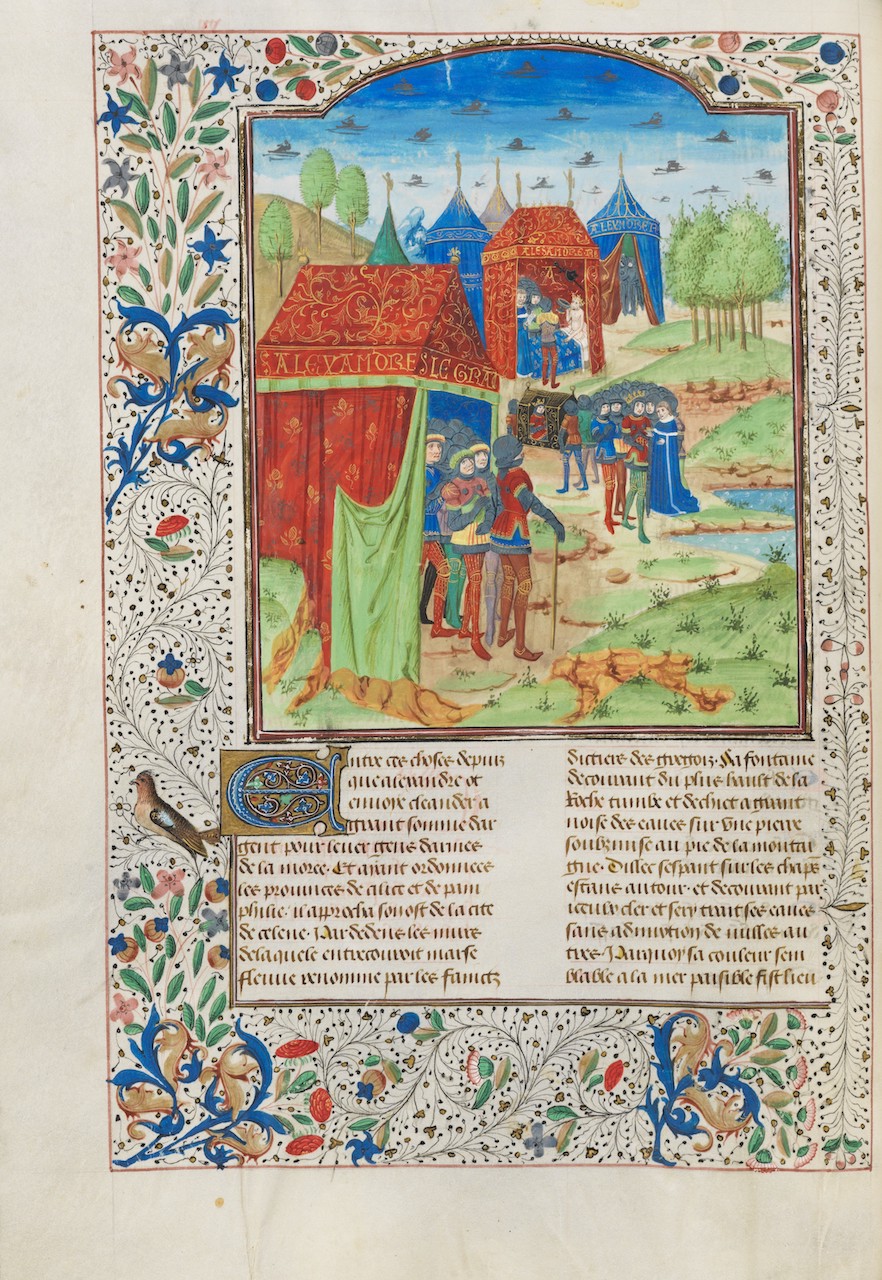 ALEXANDRE
ALESANDRE
SALEXANDRES LE GRA
Entre ces choses depuis
que alexandre ot
envoye cleander a
grant somme dar
gent pour lever gens darmes
de la moree. Et ayant ordonnees
les provinces de cilice et de pam
philie. il approcha son ost de la cite
de celene. Par dedens les murs
de laquele entrecouroit marse
fleuve renomme par les faintz
dictiers des gregois. Sa fontaine
decourant du plus hault de la
Roche tumbe et dechiet a grant
noise des eaues sur une pierre
soubzmise au pie de la montai
gne. Dillec sespant sur les champs
estans autour. et decourant par
iceulx cler et sery trait ses eaues
sans admixtion de nulles au
tres. Parquoy sa couleur sem
blable a la mer paisible fist lieu